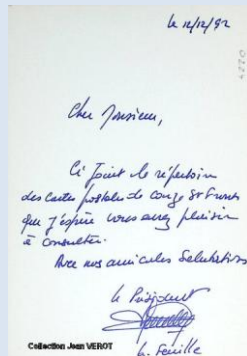 le 12/12/92
4220
Cher Monsieur,
Ci Joint le répertoire
des cartes postales de
que j'espère vous aurez plaisir
à consulter.
Avec nos amicales Salutations
le Président
Collection Jean VEROT